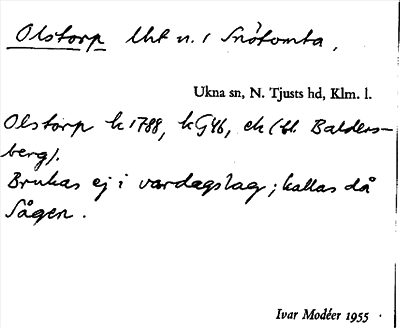 Olstorp lht u. / Snötomta,
Ukna sn, N. Tjusts hd, Klm. l.
Olstorp k 1788, kG46, ek (bl. Balders-
berg).
Brukas ej i vardagslag; kallas då
Sågen.
Ivar Modéer 1955